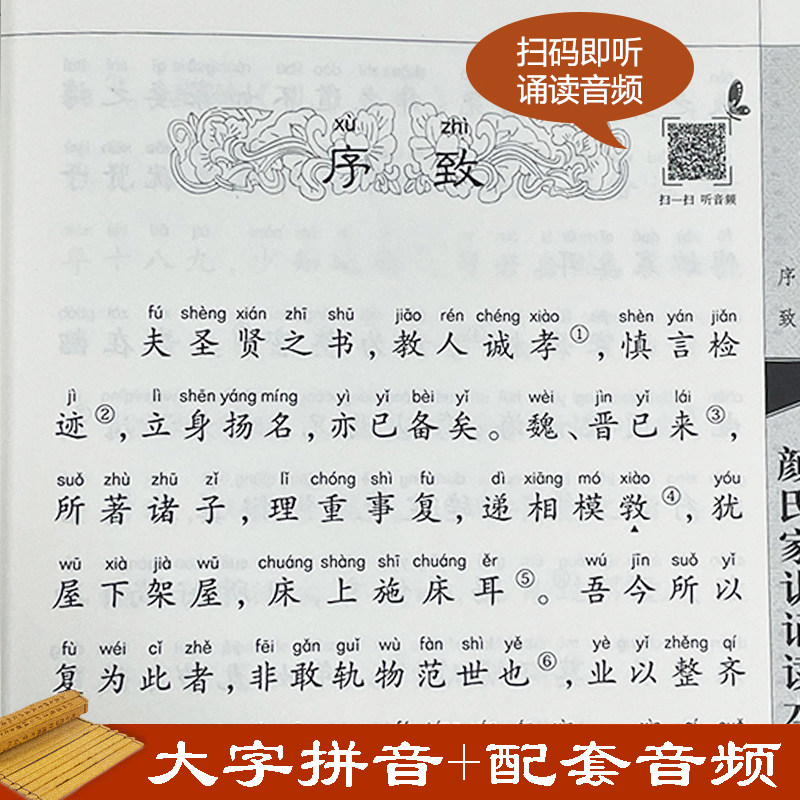 扫码即听
诵读音频
xù zhì
序 致
扫一扫 听音频
fú shèng xián zhī shū jiāo rén chéng xiào shèn yán jiǎn
夫圣贤之书，教人诚孝①，慎言检
jì lì shēn yáng míng yì yǐ bèi yǐ wèi jìn yǐ lái
迹②，立身扬名，亦已备矣。魏、晋已来③，
suǒ zhù zhū zǐ lǐ chóng shì fù dì xiāng mó xiào yóu
所著诸子，理重事复，递相模敩④，犹
wū xià jià wū chuáng shàng shī chuáng ěr wú jīn suǒ yǐ
屋下架屋，床上施床耳⑤。吾今所以
fù wéi cǐ zhě fēi gǎn guǐ wù fàn shì yě yè yǐ zhěng qí
复为此者，非敢轨物范世也⑥，业以整齐
序致
颜氏家训诵读本
大字拼音+配套音频